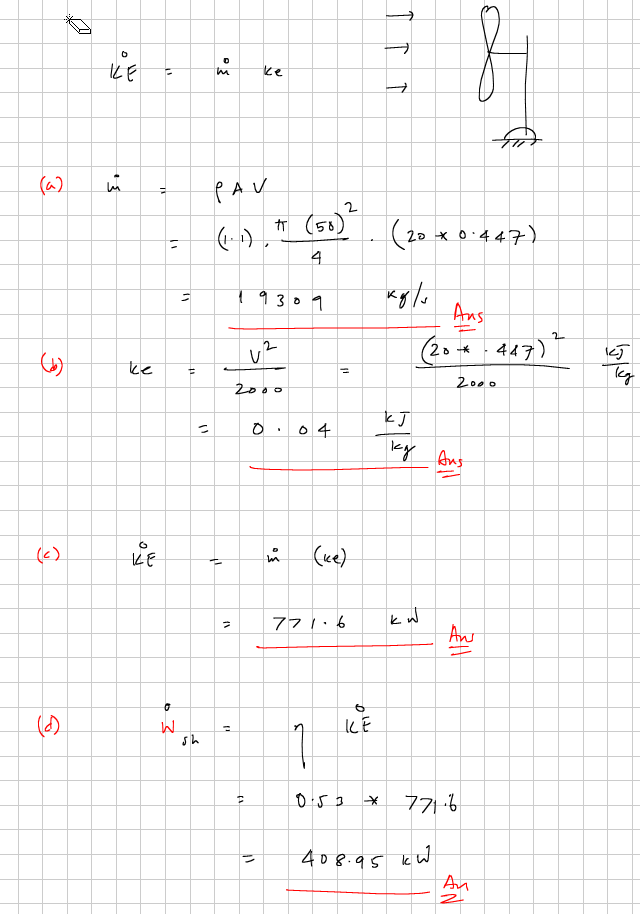 K̊E = ṁ ke
(a) ṁ = ρ A V
= (1.1) . π (50)² / 4 . (20 * 0.447)
= 19309 kg/s Ans
(b) ke = V² / 2000 = (20 * .447)² / 2000 kJ/kg
= 0.04 kJ/kg Ans
(c) K̊E = ṁ (ke)
= 771.6 kW Ans
(d) W̊sh = η K̊E
= 0.53 * 771.6
= 408.95 kW An